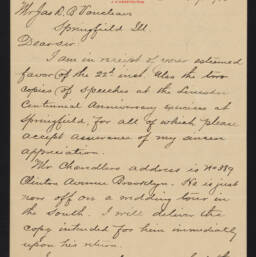 Mr Jas R. B. Van Cleave
Springfield Ill.
Dear sir:
I am in receipt of your esteemed
favor of the 22d inst. Also the two
copies of Speeches at the Lincoln
Centennial Anniversary exercises at
Springfield, for all of which please
accept assurance of my sincere
appreciation.
Mr Chandlers address is No 389
Clinton Avenue Brooklyn. He is just
now off on a wedding tour in
the South. I will deliver the
copy intended for him immediately
upon his return.